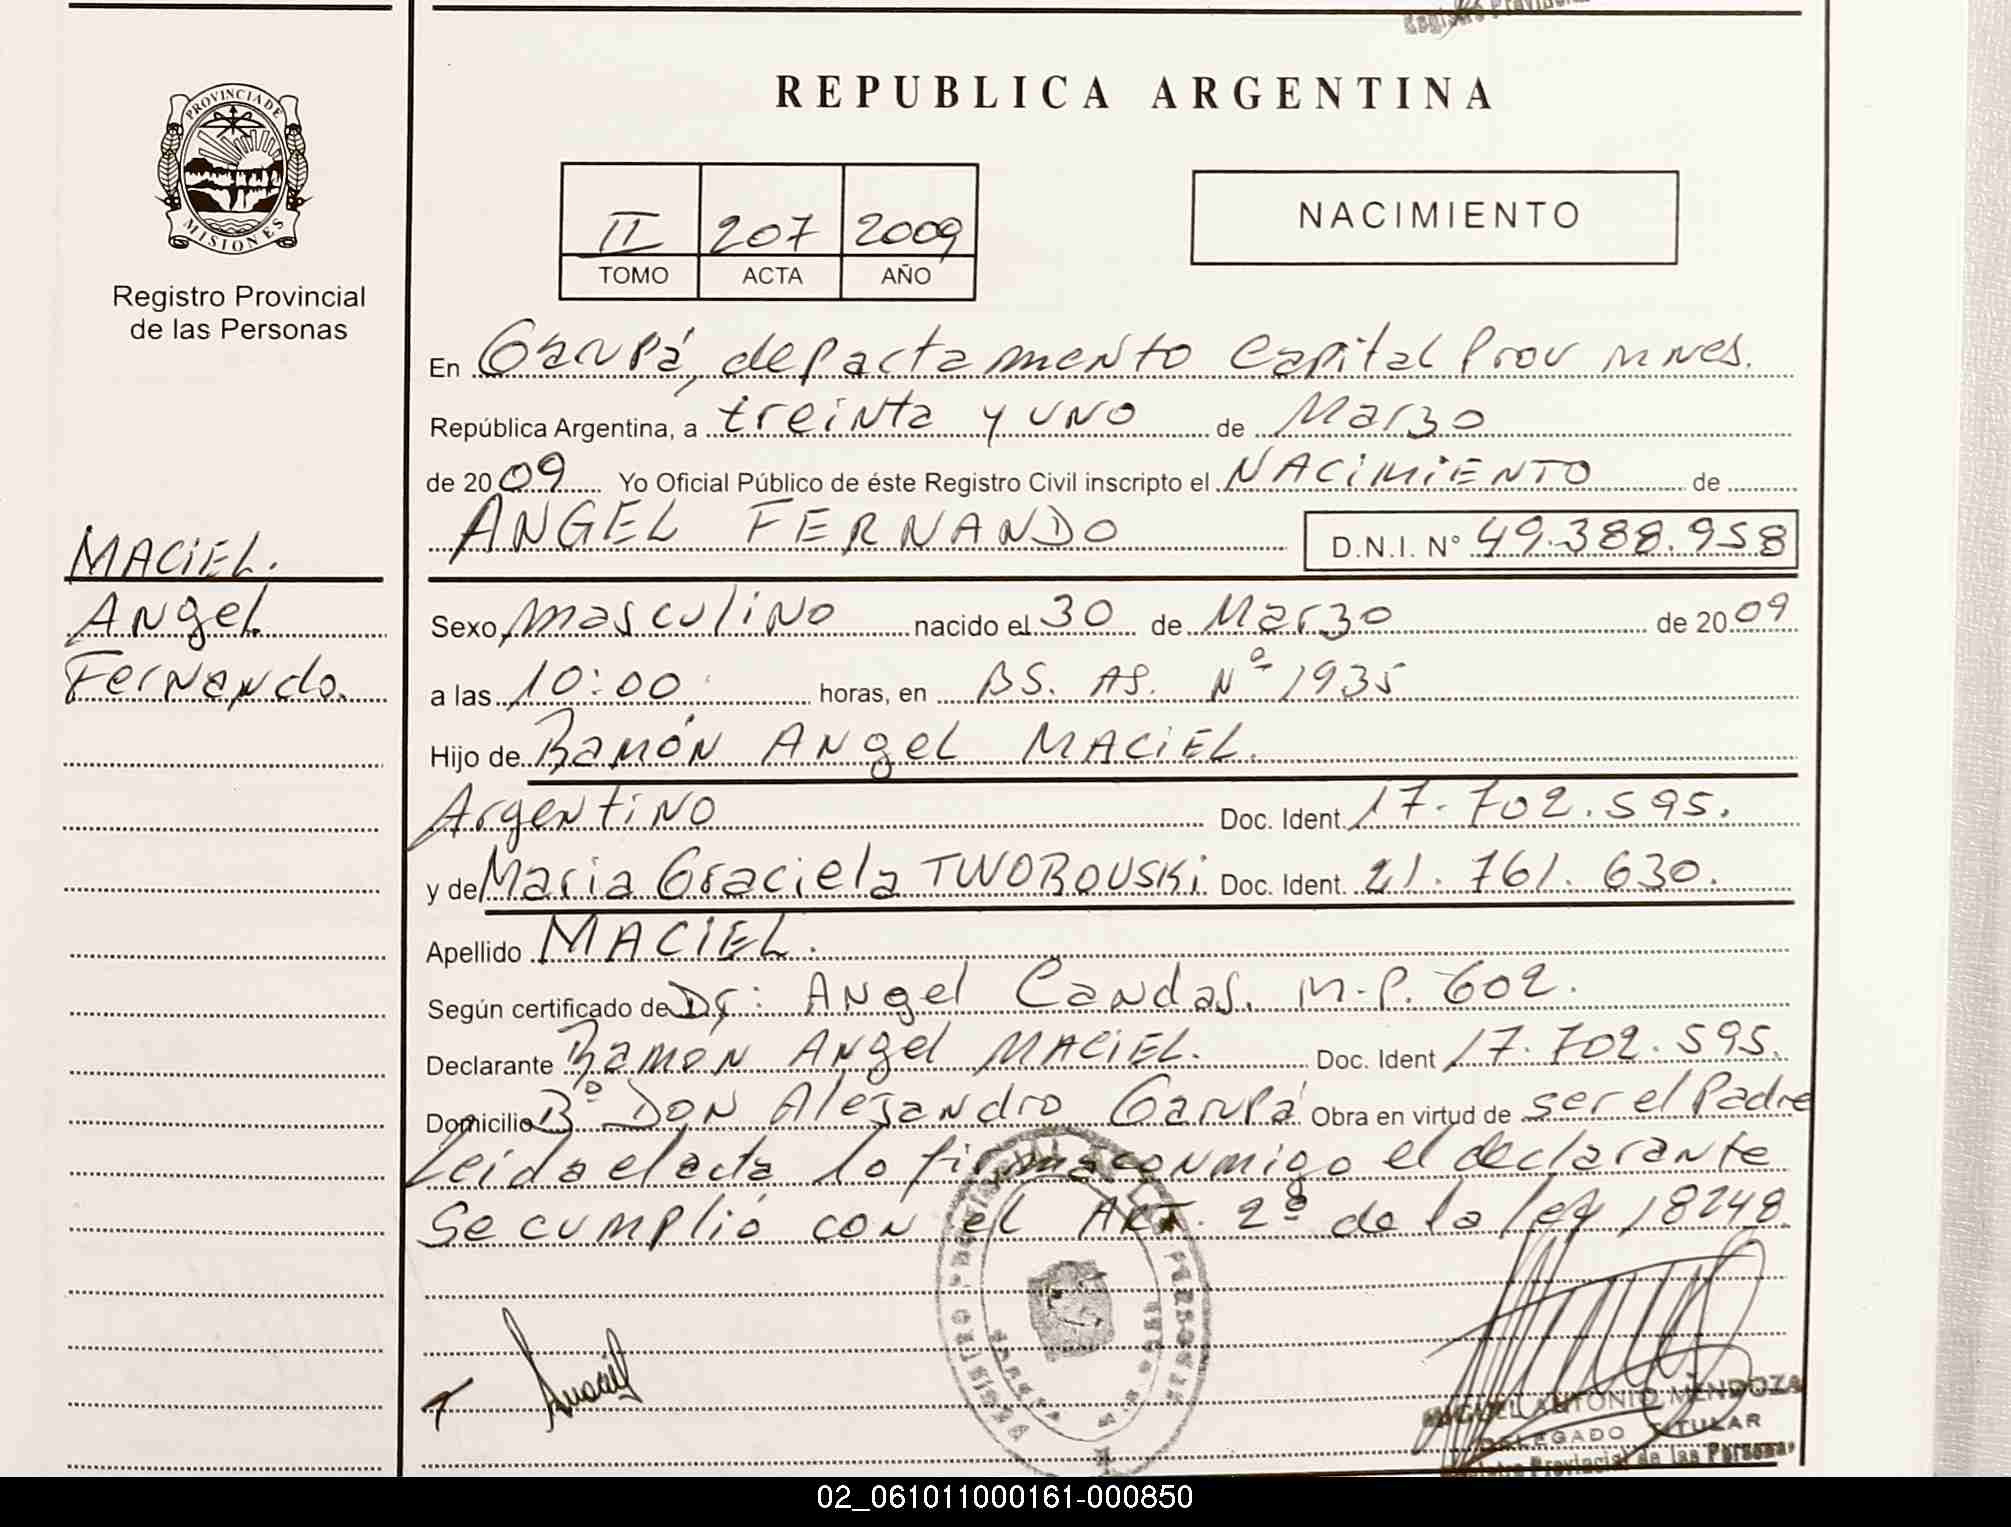 REPUBLICA ARGENTINA
PROVINCIA DE
MISIONES
Registro Provincial
de las Personas
II 207 2009
TOMO ACTA AÑO
NACIMIENTO
En Garupá, departamento Capital Prov Mnes.
República Argentina, a treinta y uno de Marzo
de 2009 Yo Oficial Público de éste Registro Civil inscripto el NACIMIENTO de
ANGEL FERNANDO D.N.I. Nº 49.388.958
MACIEL.
Angel
Fernando.
Sexo masculino nacido el 30 de Marzo de 2009
a las 10:00 horas, en BS. AS. Nº 1935
Hijo de Ramón Angel MACIEL.
Argentino Doc. Ident. 17.702.595.
y de Maria Graciela TWOROUSKi Doc. Ident. 21.761.630.
Apellido MACIEL.
Según certificado de Dr: Angel Candas. M.P. 602.
Declarante Ramón Angel MACIEL. Doc. Ident 17.702.595.
Domicilio Bº DON Alejandro Garupá Obra en virtud de ser el Padre
Leida el acta lo firma conmigo el declarante
Se cumplió con el ART. 2º de la ley 18248.
MIGUEL ANTONIO MENDOZA
DELEGADO TITULAR
Registro Provincial de las Personas
02_061011000161-000850